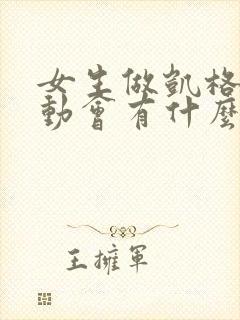 女生做凱格
動會有什麼
王擁軍